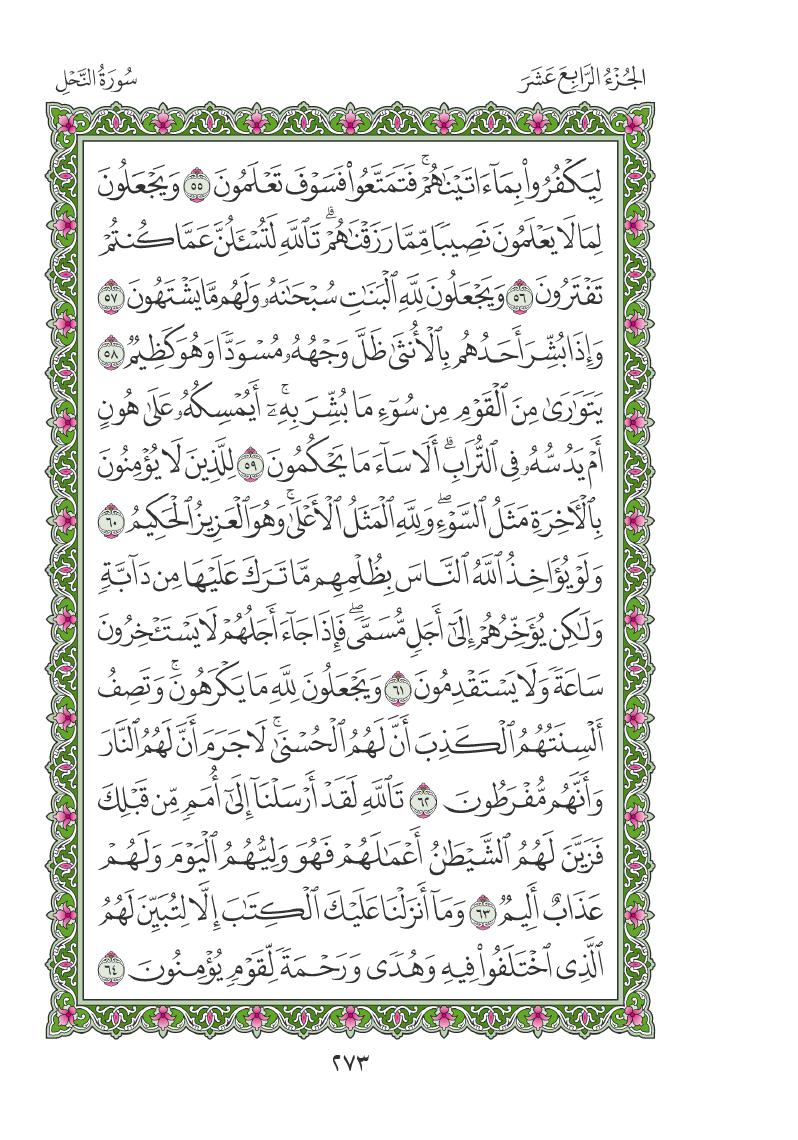 الجُزْءُ الرَّابِعَ عَشَرَ
سُورَةُ النَّحْلِ
لِيَكْفُرُوا۟ بِمَآ ءَاتَيْنَٰهُمْ ۚ فَتَمَتَّعُوا۟ فَسَوْفَ تَعْلَمُونَ ٥٥ وَيَجْعَلُونَ
لِمَا لَا يَعْلَمُونَ نَصِيبًا مِّمَّا رَزَقْنَٰهُمْ ۗ تَٱللَّهِ لَتُسْـَٔلُنَّ عَمَّا كُنتُمْ
تَفْتَرُونَ ٥٦ وَيَجْعَلُونَ لِلَّهِ ٱلْبَنَٰتِ سُبْحَٰنَهُۥ وَلَهُم مَّا يَشْتَهُونَ ٥٧
وَإِذَا بُشِّرَ أَحَدُهُم بِٱلْأُنثَىٰ ظَلَّ وَجْهُهُۥ مُسْوَدًّا وَهُوَ كَظِيمٌ ٥٨
يَتَوَٰرَىٰ مِنَ ٱلْقَوْمِ مِن سُوٓءِ مَا بُشِّرَ بِهِۦٓ ۚ أَيُمْسِكُهُۥ عَلَىٰ هُونٍ
أَمْ يَدُسُّهُۥ فِى ٱلتُّرَابِ ۗ أَلَا سَآءَ مَا يَحْكُمُونَ ٥٩ لِلَّذِينَ لَا يُؤْمِنُونَ
بِٱلْـَٔاخِرَةِ مَثَلُ ٱلسَّوْءِ ۖ وَلِلَّهِ ٱلْمَثَلُ ٱلْأَعْلَىٰ ۚ وَهُوَ ٱلْعَزِيزُ ٱلْحَكِيمُ ٦٠
وَلَوْ يُؤَاخِذُ ٱللَّهُ ٱلنَّاسَ بِظُلْمِهِم مَّا تَرَكَ عَلَيْهَا مِن دَآبَّةٍ
وَلَٰكِن يُؤَخِّرُهُمْ إِلَىٰٓ أَجَلٍ مُّسَمًّى ۖ فَإِذَا جَآءَ أَجَلُهُمْ لَا يَسْتَـْٔخِرُونَ
سَاعَةً وَلَا يَسْتَقْدِمُونَ ٦١ وَيَجْعَلُونَ لِلَّهِ مَا يَكْرَهُونَ ۚ وَتَصِفُ
أَلْسِنَتُهُمُ ٱلْكَذِبَ أَنَّ لَهُمُ ٱلْحُسْنَىٰ ۚ لَا جَرَمَ أَنَّ لَهُمُ ٱلنَّارَ
وَأَنَّهُم مُّفْرَطُونَ ٦٢ تَٱللَّهِ لَقَدْ أَرْسَلْنَآ إِلَىٰٓ أُمَمٍ مِّن قَبْلِكَ
فَزَيَّنَ لَهُمُ ٱلشَّيْطَٰنُ أَعْمَٰلَهُمْ فَهُوَ وَلِيُّهُمُ ٱلْيَوْمَ وَلَهُمْ
عَذَابٌ أَلِيمٌ ٦٣ وَمَآ أَنزَلْنَا عَلَيْكَ ٱلْكِتَٰبَ إِلَّا لِتُبَيِّنَ لَهُمُ
ٱلَّذِى ٱخْتَلَفُوا۟ فِيهِ وَهُدًى وَرَحْمَةً لِّقَوْمٍ يُؤْمِنُونَ ٦٤
٢٧٣